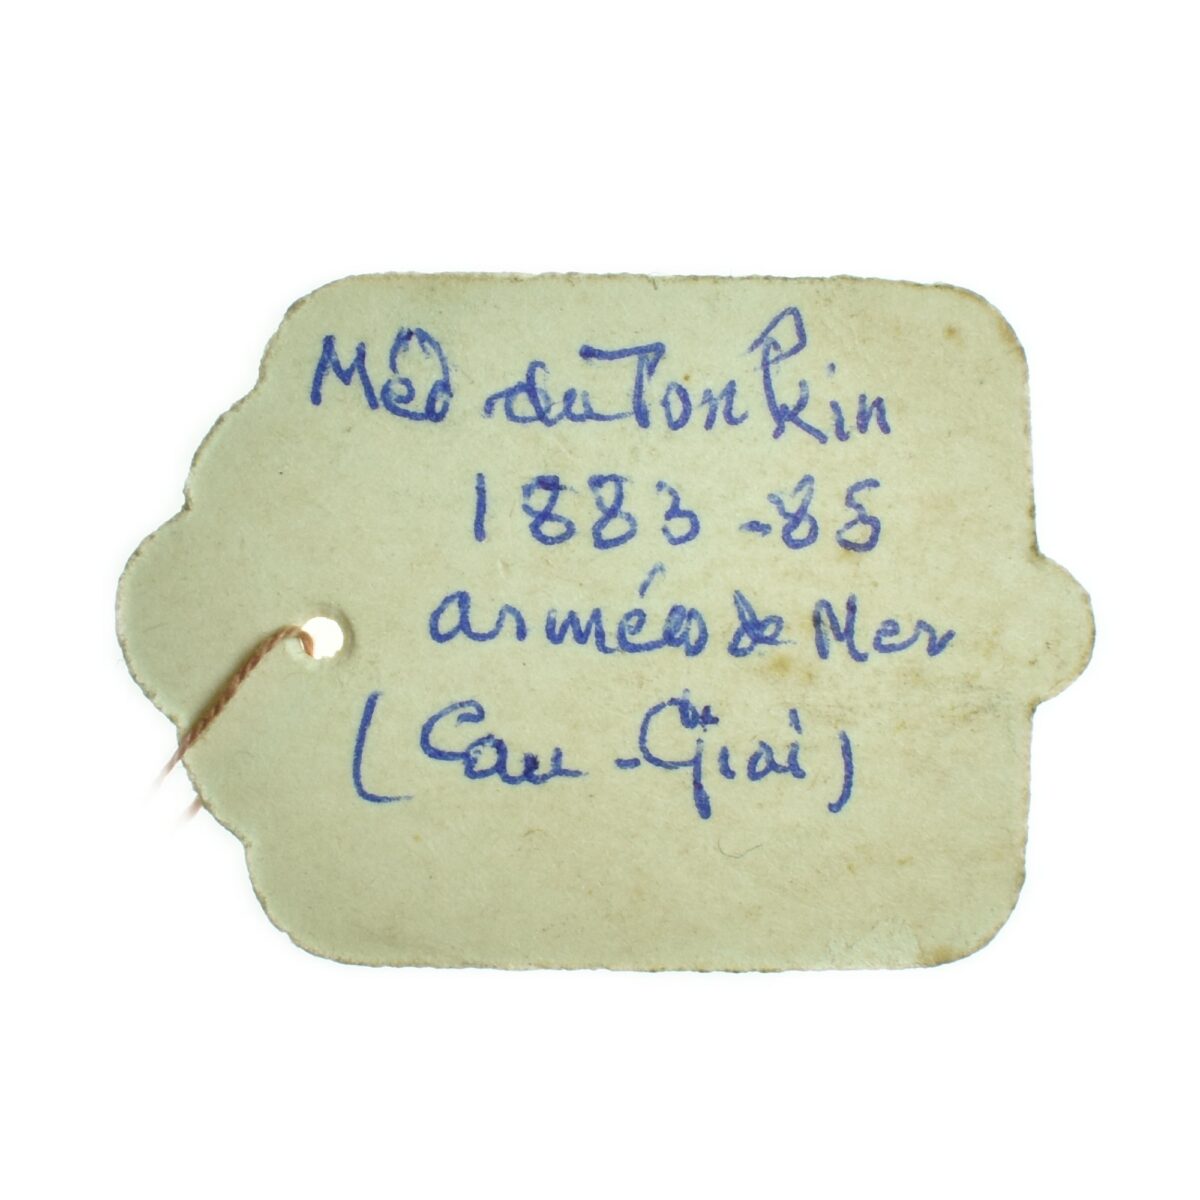 Méd du Tonkin
1883-85
armées de Mer
(Cau-Giai)